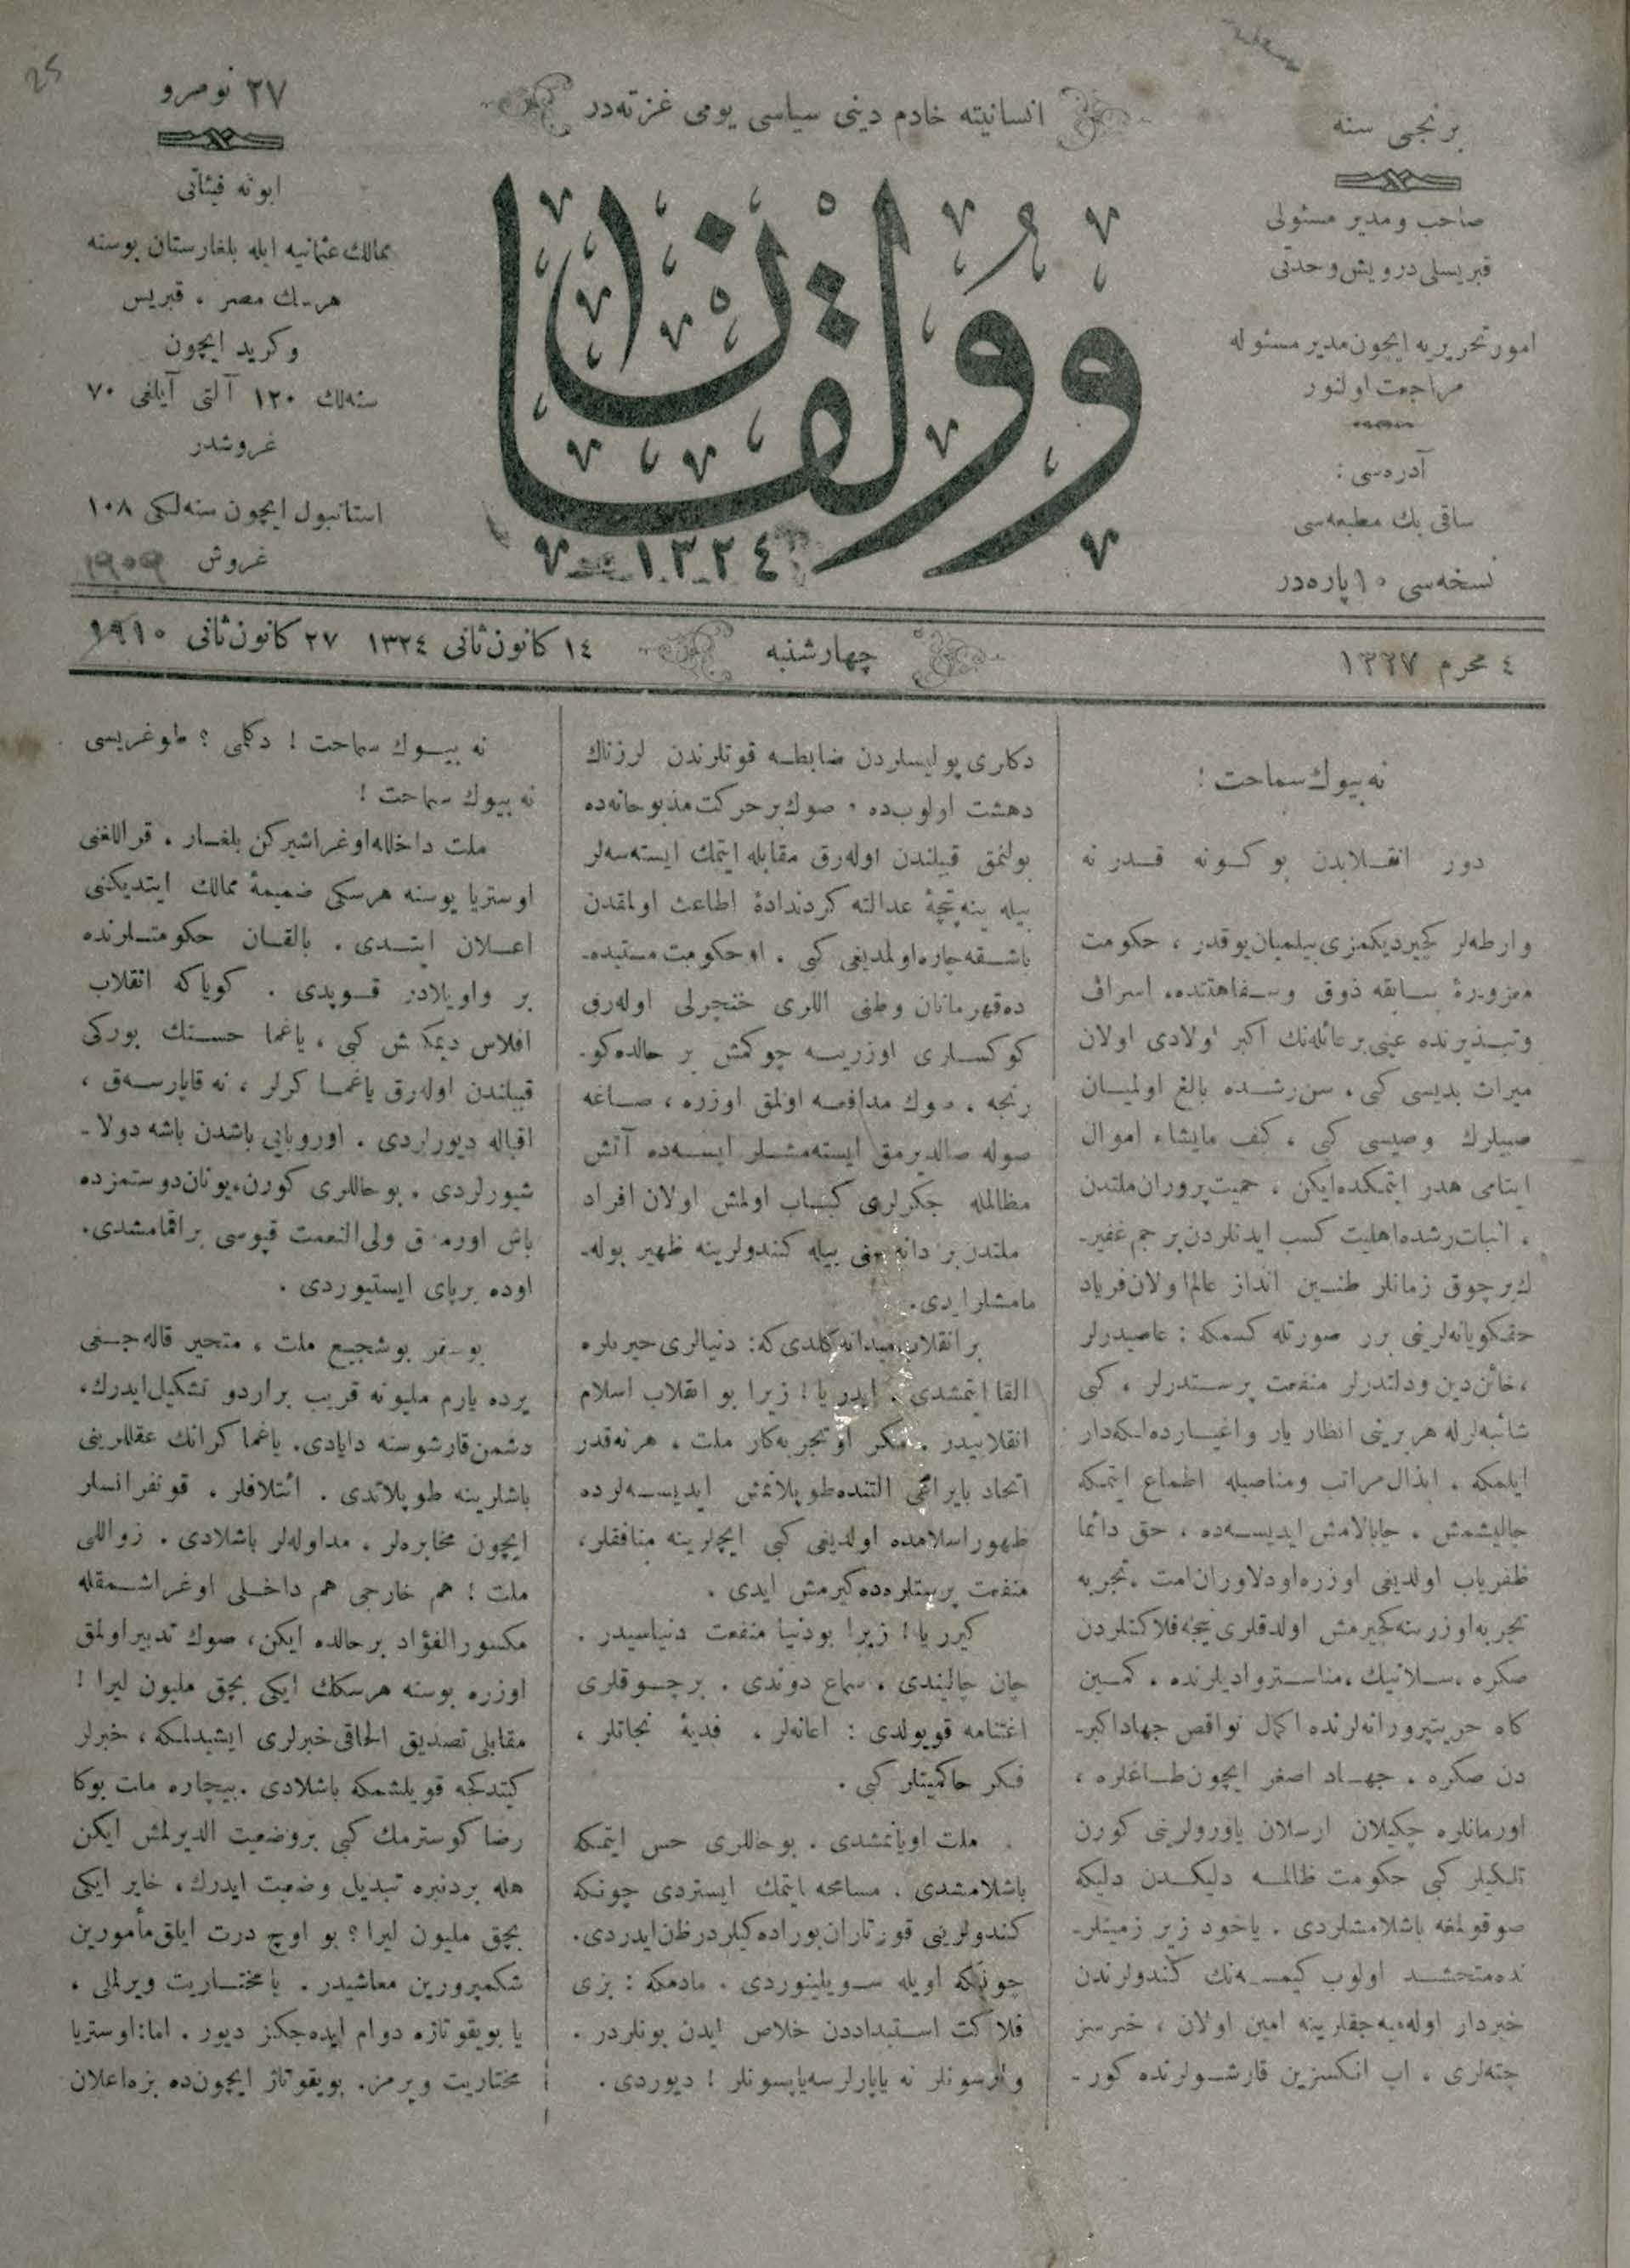 برنجی سنه
صاحب و مدیر مسئولی
قبریسلی درویش وحدتی
امور تحریریه ایچون مدیر مسئوله
مراجعت اولنور
آدرەسی :
ساقی بك مطبعه‌سی
نسخه‌سی ١٠ پاره‌در
انسانیته خادم دینی سیاسی یومی غزته‌در
وولقان
١٣٢٤
٢٧ نومرو
ابونه فیئاتی
ممالك عثمانیه ایله بلغارستان بوسنه
هرسك مصر ، قبریس
و كرید ایچون
سنه‌لك ١٢٠ آلتی آیلغی ٧٠
غروشدر
استانبول ایچون سنه‌لكی ١٠٨
غروش
٤ محرم ١٣٢٧
چهارشنبه
١٤ كانون ثانی ١٣٢٤ ٢٧ كانون ثانی ١٩١٠
نه بیوك سماحت !
دور انقلابدن بو كونه قدر نه
وارطه‌لر كچیردیكمزی بیلمیان یوقدر ، حكومت
مزورۀ سابقه ذوق وسفاهتنده، اسراف
وتبذیرنده عینی بر عائله‌نك اكبر اولادی اولان
میراث یدیسی كبی ، سن رشده بالغ اولمیان
صبیلرك وصیسی كبی ، كیف مایشاء اموال
ایتامی هدر ایتمكده ایكن ، حمیت پروران ملتدن
، اثبات رشده اهلیت كسب ایدنلردن بر جم غفیر-
ك بر چوق زمانلر طنین انداز عالم اولان فریاد
حقكویانه‌لرینی برر صورتله كسمكه : عاصیدرلر
، خائن دین ودلتدرلر منفعت پرستدرلر ، كبی
شائبه‌لرله هر برینی انظار یار واغیارده لكه‌دار
ایلمكه ، ابذال مراتب ومناصبله اطماع ایتمكه
چالیشمش ، چابالامش ایدیسه‌ده ، حق دائما
ظفریاب اولدیغی اوزره او دلاوران امت ، تجربه
تجربه اوزرینه كچیرمش اولدقلری نیجه فلاكتلردن
صكره ، سلانیك ، مناستر وادیلرنده ، كمین
كاه حریتپرورانه‌لرنده اكمال نواقص جهاد اكبر-
دن صكره ، جهاد اصغر ایچون طاغلره ،
اورمانلره چكیلان ارسلان یاورولرینی كورن
تلكیلر كبی حكومت ظالمه دلیكدن دلیكه
صوقولمغه باشلامشلردی . یاخود زیر زمینلر-
نده متحشد اولوب كیمسه‌نك كندولرندن
خبردار اوله‌میه‌جقلرینه امین اولان ، خبرسز
چته‌لری ، اپ انكسزین قارشولرنده كور-
دكلری پولیسلردن ضابطه قوتلرندن لرزناك
دهشت اولوب‌ده ، صوك بر حركت مذبوحانه‌ده
بولنمق قبیلندن اوله‌رق مقابله ایتمك ایسته‌سه‌لر
بیله ینه پنجۀ عدالته كردندادۀ اطاعت اولمقدن
باشقه چاره اولمدیغی كبی ، او حكومت مستبده-
ده قهرمانان وطنی اللری خنجرلی اوله‌رق
كوكسلری اوزرینه چوكمش بر حالده كو-
رنجه ، صوك مدافعه اولمق اوزره ، صاغه
صوله صالدیرمق ایسته‌مشلر ایسه‌ده آتش
مظالمله جكرلری كباب اولمش اولان افراد
ملتدن بر دانه‌سنی بیله كندولرینه ظهیر بوله-
مامشلرایدی.
بر انقلاب میدانه كلدی كه : دنیالری حیرتلره
القا ایتمشدی . ایدر یا ! زیرا بو انقلاب اسلام
انقلابیدر . مكر او تجربه‌كار ملت ، هر نه قدر
اتحاد بایراغی التنده طوپلانمش ایدیسه‌لرده
ظهور اسلامده اولدیغی كبی ایچلرینه منافقلر ،
منفعت پرستلرده كیرمش ایدی .
كیرر یا ! زیرا بو دنیا منفعت دنیاسیدر .
چان چالیندی ، سماع دوندی . بر چوقلری
اغتنامه قویولدی : اعانه‌لر ، فدیۀ نجاتلر ،
فكر حاكمیتلر كبی .
ملت اویانمشدی . بو حاللری حس ایتمكه
باشلامشدی . مسامحه ایتمك ایستردی چونكه
كندولرینی قورتاران بوراده كیلردر ظن ایدردی.
چونكه اویله سویلینوردی . مادمكه : بزی
فلاكت استبداددن خلاص ایدن بونلردر .
وارسونلر نه یاپارلرسه یاپسونلر ! دیوردی .
نه بیوك سماحت ! دكلمی ؟ طوغریسی
نه بیوك سماحت !
ملت داخلله اوغراشیركن بلغار ، قراللغنی
اوستریا بوسنه هرسكی ضمیمۀ ممالك ایتدیكنی
اعلان ایتدی . بالقان حكومتلرنده
بر واویلادر قوپدی . كویاكه انقلاب
افلاس دیمكمش كبی ، یاغما حسنك بوركی
قبیلندن اوله‌رق یاغما كرلر ، نه قاپارسه‌ق ،
اقباله دیورلردی . اوروپایی باشدن باشه دولا-
شیورلردی . بو حاللری كورن، یونان دوستمزده
باش اورمدق ولی النعمت قپوسی براقمامشدی.
اوده بر پای ایستیوردی .
بو سفر بو شجیع ملت ، متحیر قاله‌جغی
یرده یارم ملیونه قریب بر اردو تشكیل ایدرك،
دشمن قارشوسنه دایادی. یاغما كرانك عقللرینی
باشلرینه طوپلاتدی . ائتلافلر ، قونفرانسلر
ایچون مخابره‌لر ، مداوله‌لر باشلادی . زواللی
ملت ! هم خارجی هم داخلی اوغراشمقله
مكسور الفؤاد بر حالده ایكن، صوك تدبیر اولمق
اوزره بوسنه هرسكك ایكی بچق ملیون لیرا !
مقابلی تصدیق الحاقی خبرلری ایشیدلمكه ، خبرلر
كیتدكجه قویلشمكه باشلادی . بیچاره ملت بوكا
رضا كوسترمك كبی بر وضعیت الدیرلمش ایكن
هله بردنبره تبدیل وضعیت ایدرك ، خایر ایكی
بچق ملیون لیرا ؟ بو اوچ درت ایلق مأمورین
شكمپرورین معاشیدر . یا مختاریت ویرلملی ،
یا بویقوتاژه دوام ایده‌جكز دیور . اما : اوستریا
مختاریت ویرمز. بویقوتاژ ایچون‌ده بزه اعلان